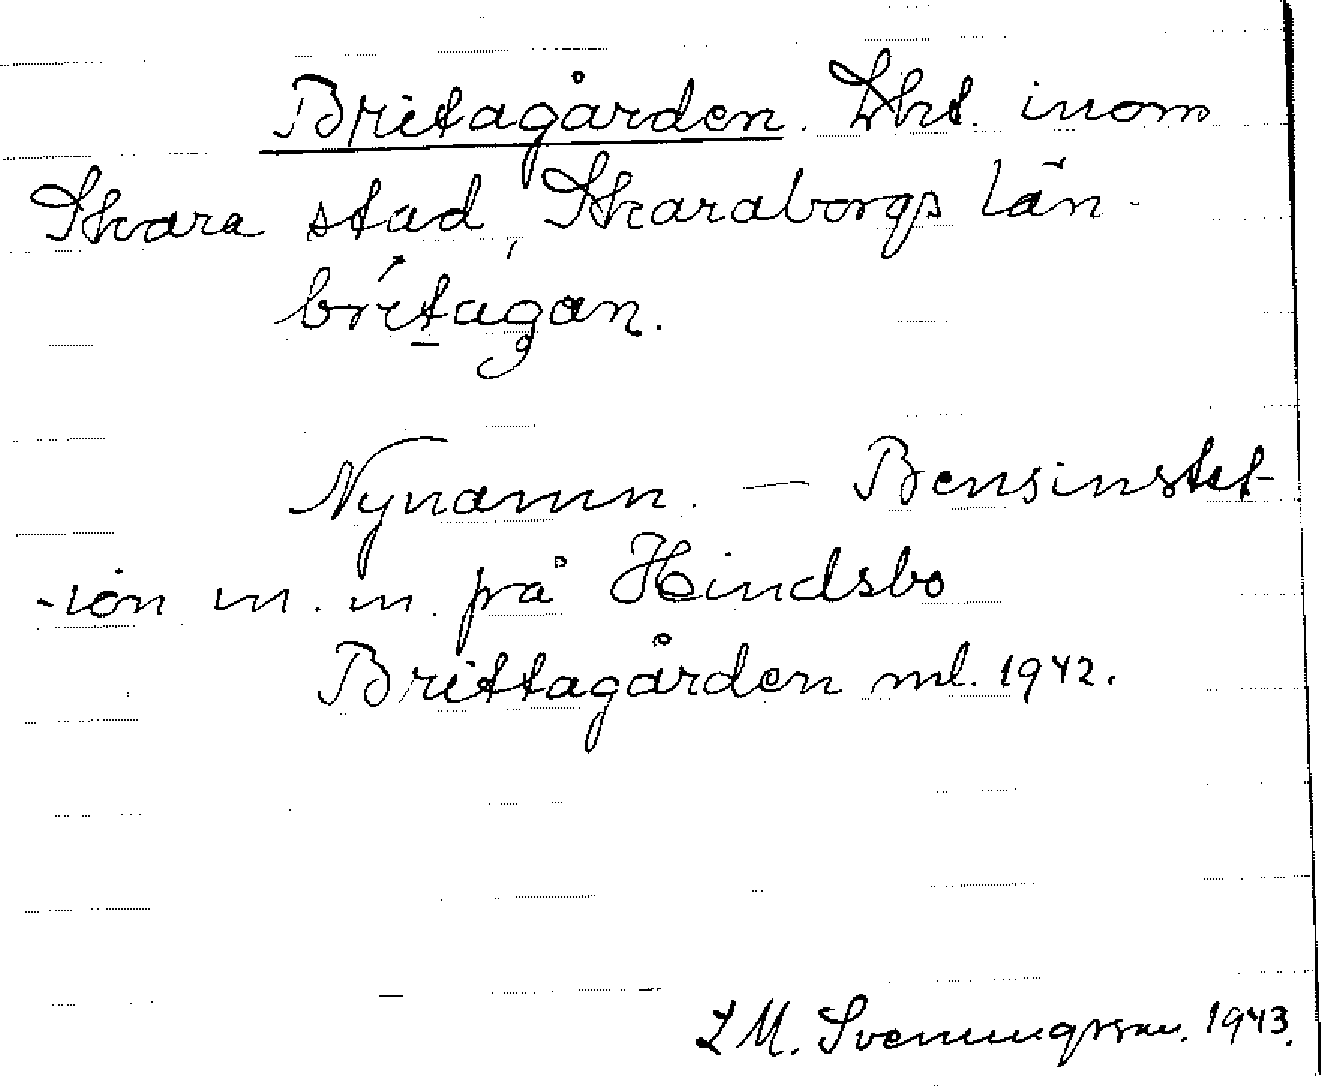 Britagården. Lht. inom
Skara stad, Skaraborgs län.
britagan.
Nynamn. — Bensinstat-
-ion m. m. på Hindsbo
Brittagården ml. 1942.
L M. Svenungsson. 1943.